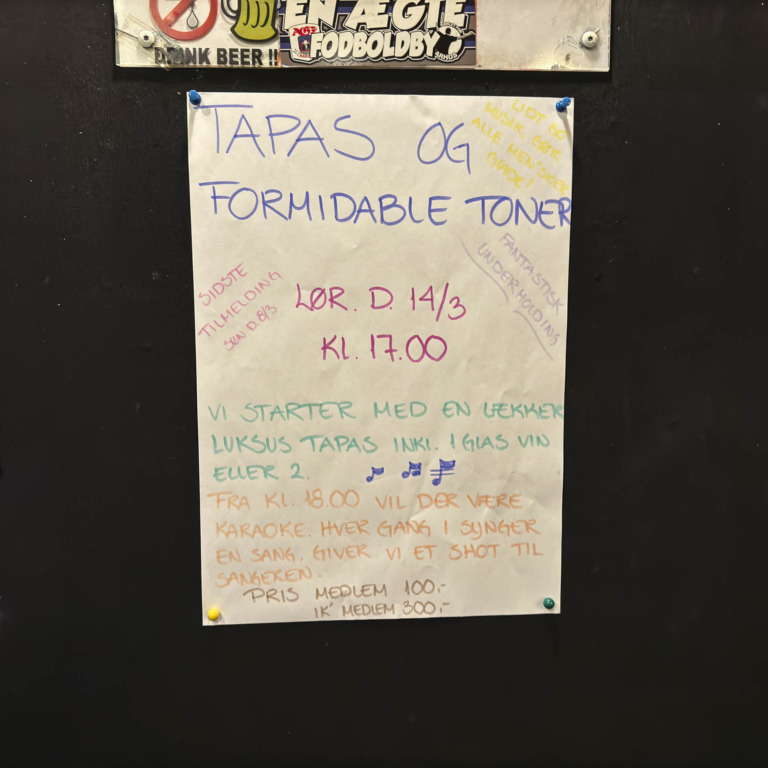 DRINK BEER !!
EN ÆGTE
FODBOLDBY
TAPAS OG
FORMIDABLE TONER
LIDT OG
MUSIK GØR
ALLE MEN'SKER
GLADE!
FANTASTISK
UNDERHOLDNING
SIDSTE
TILMELDING
SØN D. 8/3
LØR. D. 14/3
KL. 17.00
VI STARTER MED EN LÆKKER
LUKSUS TAPAS INKL. 1 GLAS VIN
ELLER 2.
FRA KL. 18.00 VIL DER VÆRE
KARAOKE. HVER GANG I SYNGER
EN SANG, GIVER VI ET SHOT TIL
SANGEREN.
PRIS MEDLEM 100,-
IK' MEDLEM 300,-